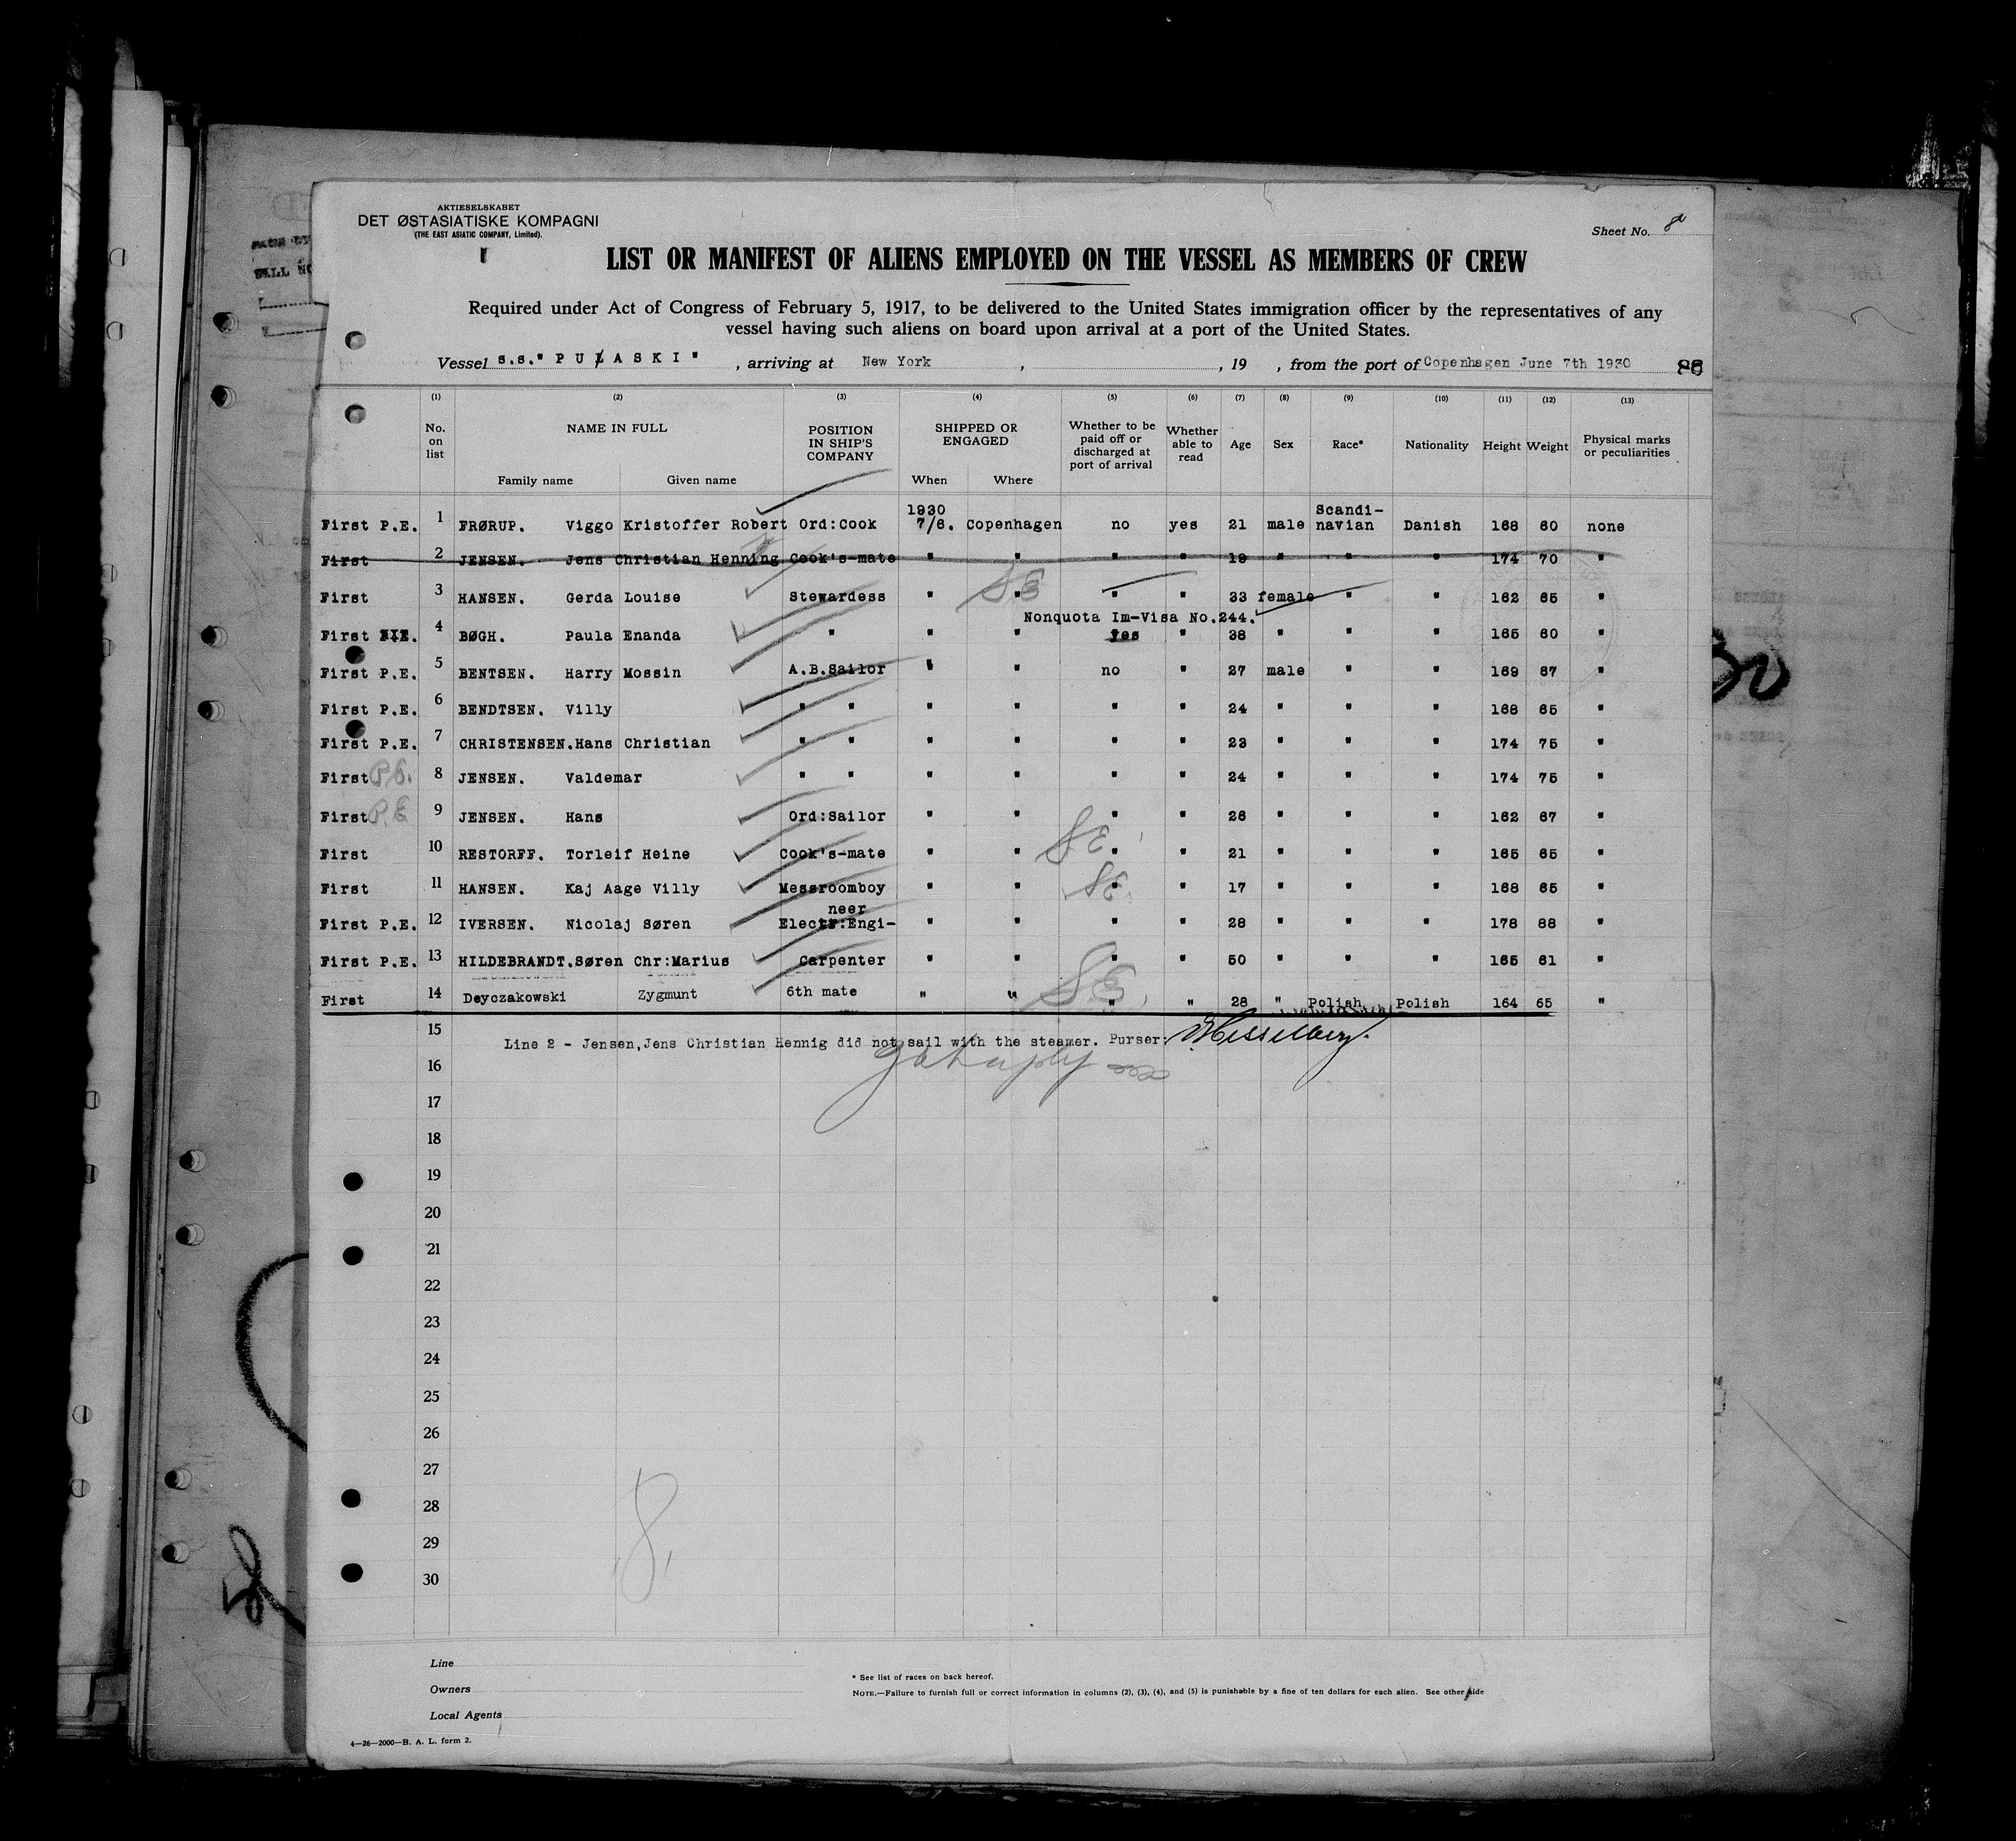 AKTIESELSKABET
DET ØSTASIATISKE KOMPAGNI
(THE EAST ASIATIC COMPANY, Limited).
Sheet No. 8
LIST OR MANIFEST OF ALIENS EMPLOYED ON THE VESSEL AS MEMBERS OF CREW
Required under Act of Congress of February 5, 1917, to be delivered to the United States immigration officer by the representatives of any
vessel having such aliens on board upon arrival at a port of the United States.
Vessel s.s." P U Ł A S K I " , arriving at New York , , 19 , from the port of Copenhagen June 7th 1930 86
(1) (2) (3) (4) (5) (6) (7) (8) (9) (10) (11) (12) (13)
No. on list NAME IN FULL Family name Given name POSITION IN SHIP'S COMPANY SHIPPED OR ENGAGED When Where Whether to be paid off or discharged at port of arrival Whether able to read Age Sex Race* Nationality Height Weight Physical marks or peculiarities
First P.E. 1 FRØRUP. Viggo Kristoffer Robert Ord:Cook 1930 7/6. Copenhagen no yes 21 male Scandi-navian Danish 168 60 none
First 2 JENSEN. Jens Christian Henning Cook's-mate " " " " 19 " " " 174 70 "
First 3 HANSEN. Gerda Louise Stewardess " " " " 33 female " " 162 65 "
Nonquota Im-Visa No.244.
First 4 BØGH. Paula Enanda " " " Yes " 38 " " " 165 60 "
First P.E. 5 BENTSEN. Harry Mossin A.B.Sailor " " no " 27 male " " 169 67 "
First P.E. 6 BENDTSEN. Villy " " " " " " 24 " " " 168 65 "
First P.E. 7 CHRISTENSEN. Hans Christian " " " " " " 23 " " " 174 75 "
First P.E. 8 JENSEN. Valdemar " " " " " " 24 " " " 174 75 "
First P.E. 9 JENSEN. Hans Ord:Sailor " " " " 26 " " " 162 67 "
First 10 RESTORFF. Torleif Heine Cook's-mate " " SE " " 21 " " " 165 65 "
First 11 HANSEN. Kaj Aage Villy Messroomboy " " SE " " 17 " " " 168 65 "
First P.E. 12 IVERSEN. Nicolaj Søren Electr:Engi-neer " " " " 28 " " " 178 88 "
First P.E. 13 HILDEBRANDT. Søren Chr:Marius Carpenter " " " " 50 " " " 165 61 "
First 14 Deyczakowski Zygmunt 6th mate " " SE " " 28 " Polish Polish 164 65 "
15
Line 2 - Jensen,Jens Christian Hennig did not sail with the steamer. Purser:
16
17
18
19
20
21
22
23
24
25
26
27
28
29
30
8
Line
Owners
Local Agents
* See list of races on back hereof.
NOTE.—Failure to furnish full or correct information in columns (2), (3), (4), and (5) is punishable by a fine of ten dollars for each alien. See other side
4—26—2000—B. A. L. form 2.